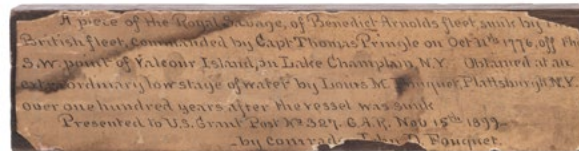 A piece of the Royal Savage, of Benedict Arnolds fleet, sunk by
British fleet, commanded by Capt Thomas Pringle on Oct 11th 1776, off
S.W. point of Valcour Island, on Lake Champlain, N.Y. Obtained at an
extraordinary low stage of water by Louis M Plattsburgh N.Y.
over one hundred years after the vessel was sunk
Presented to U.S. Grant Post No 327. G.A.R. Nov 15th 1899-
-by comrade John D. Fouquet.